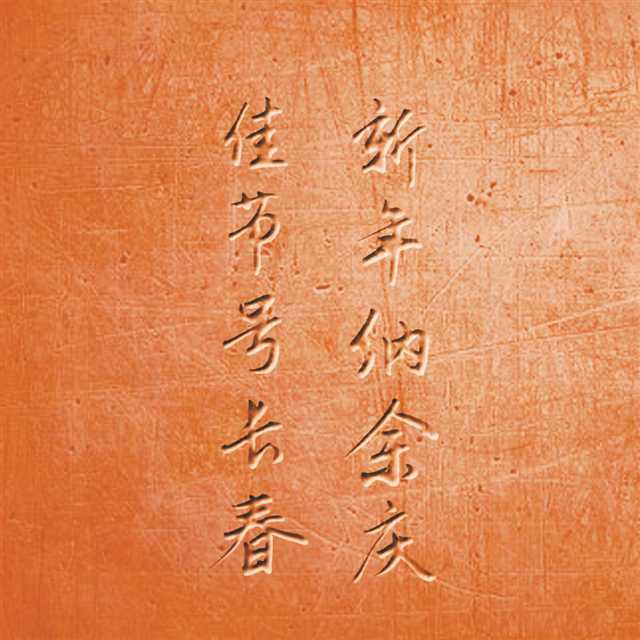 新年纳余庆
佳节号长春